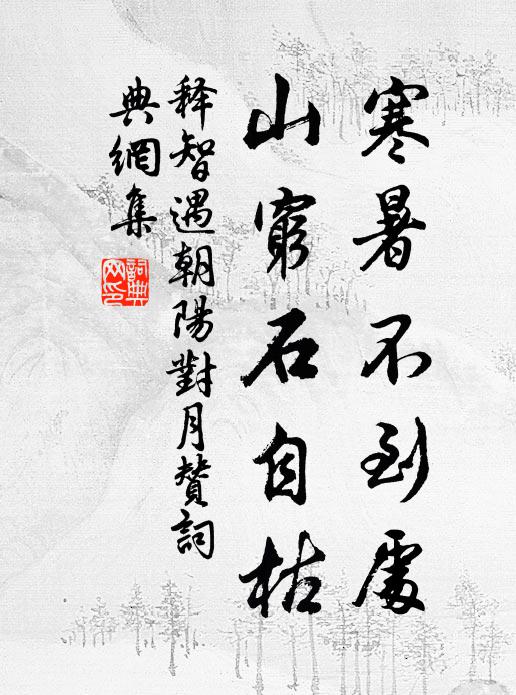 寒暑不到處
山窮石自枯
释智遇朝陽對月贊詞
典網集
詞典網印